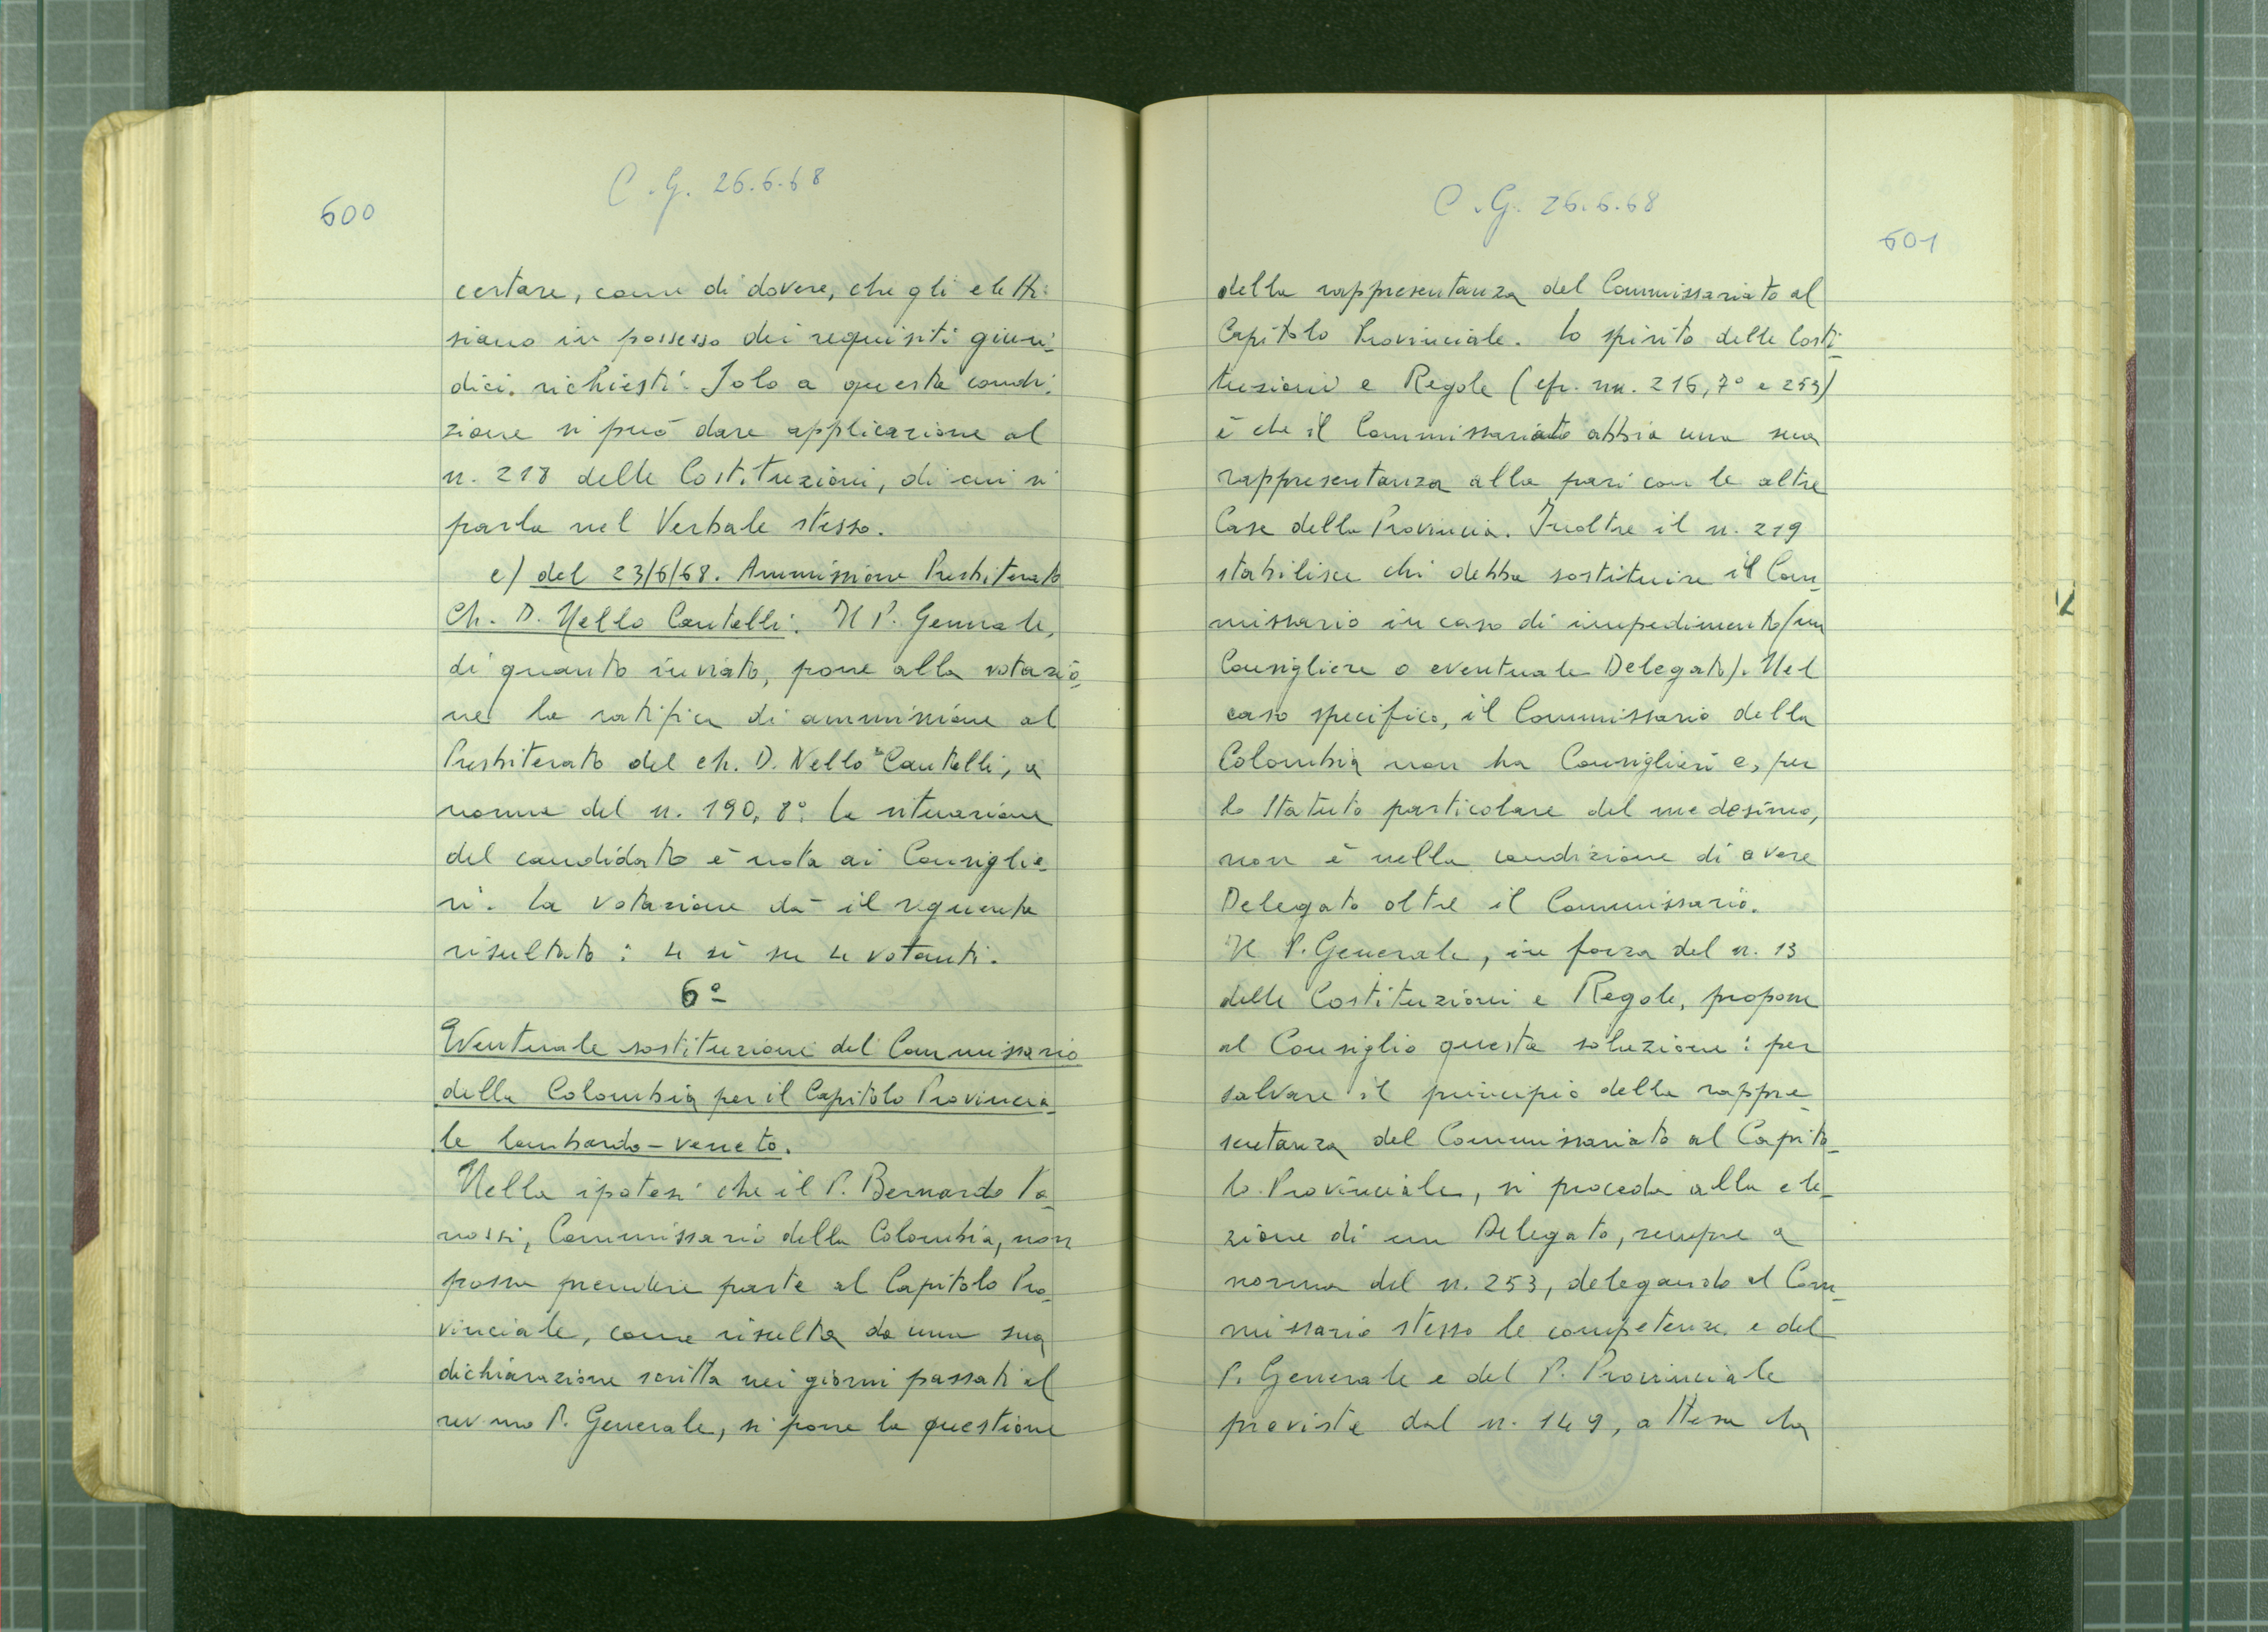 600
C.G. 26.6.68
certare, come di dovere, che gli eletti
siano in possesso dei requisiti giuri-
dici richiesti. Solo a questa condi-
zione si può dare applicazione al
n. 218 delle Costituzioni, di cui si
parla nel Verbale stesso.
e) del 23/6/68. Ammissione Presbiterato
Ch. D. Nello Cantelli. Il P. Generale,
di quanto inviato, pone alla votazio-
ne la ratifica di ammissione al
Presbiterato del ch. D. Nello Cantelli, a
norma del n. 190, 8º. La situazione
del candidato è nota ai Consiglie-
ri. La votazione dà il seguente
risultato: 4 sì su 4 votanti.
6º
Eventuale sostituzione del Commissario
della Colombia per il Capitolo Provincia-
le lombardo-veneto.
Nella ipotesi che il P. Bernardo Va-
nossi, Commissario della Colombia, non
possa prendere parte al Capitolo Pro-
vinciale, come risulta da una sua
dichiarazione scritta nei giorni passati al
rev.mo P. Generale, si pone la questione
C.G. 26.6.68
601
della rappresentanza del Commissariato al
Capitolo Provinciale. Lo spirito delle Costi-
tuzioni e Regole (cfr. nn. 216, 7º e 253)
è che il Commissariato abbia una sua
rappresentanza alla pari con le altre
Case della Provincia. Inoltre il n. 219
stabilisce chi debba sostituire il Com-
missario in caso di impedimento (un
Consigliere o eventuale Delegato). Nel
caso specifico, il Commissario della
Colombia non ha Consiglieri e, per
lo Statuto particolare del medesimo,
non è nella condizione di avere
Delegato oltre il Commissario.
Il P. Generale, in forza del n. 13
delle Costituzioni e Regole, propone
al Consiglio questa soluzione: per
salvare il principio della rappre-
sentanza del Commissariato al Capito-
lo Provinciale, si proceda alla ele-
zione di un Delegato, sempre a
norma del n. 253, delegando al Com-
missario stesso le competenze e del
P. Generale e del P. Provinciale
previste dal n. 149, attesa la